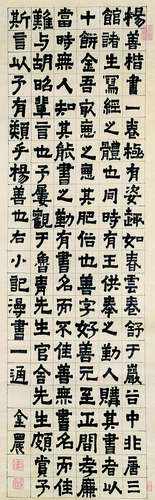 楊善楷書一卷極有姿趣如春雲卷舒于巖谷中非唐三
館諸生寫經之體也同時有王供奉之勤人購其書者
十餅金吾最惡之惡其肥俗也善字好善元至正間孝廉
當時無人知其能書之勤有書名而不佳善無書名而
難与胡昭輩言也予屢觀于魯先生官舍先生頗賞予
斯言以予有類乎楊善也右小記漫書一通 金農